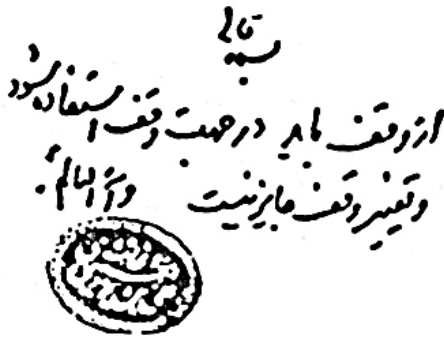 بسمه تعالی
از وقف باید در جهت وقف استفاده شود
و تغییر وقف جایز نیست والله العالم